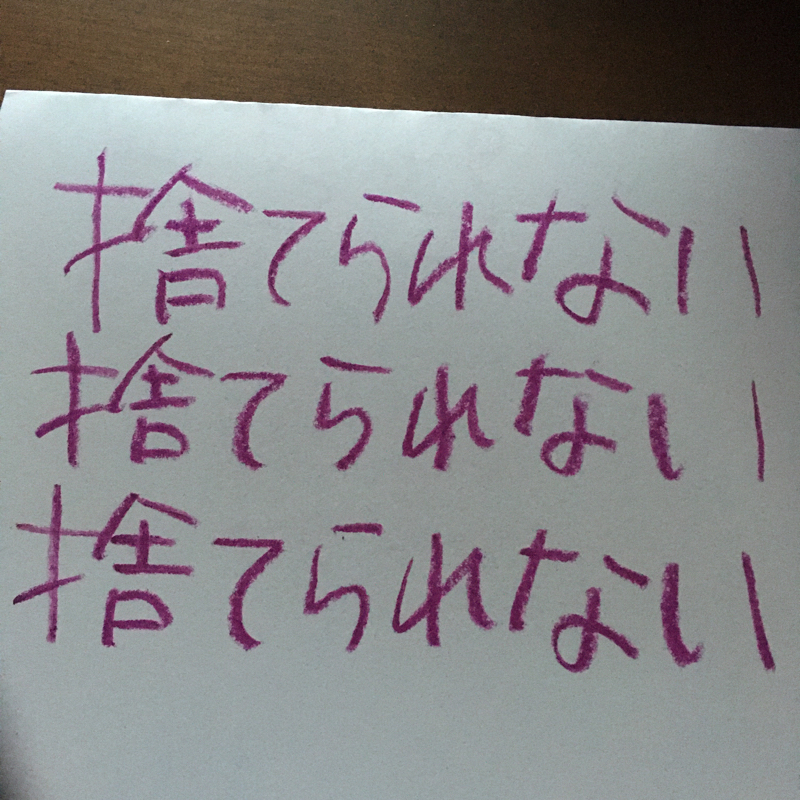 捨てられない
捨てられない
捨てられない